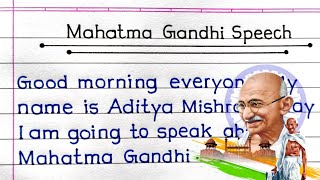 Mahatma Gandhi Speech
Good morning everyone
name is Aditya Mishra
I am going to speak
Mahatma Gandhi